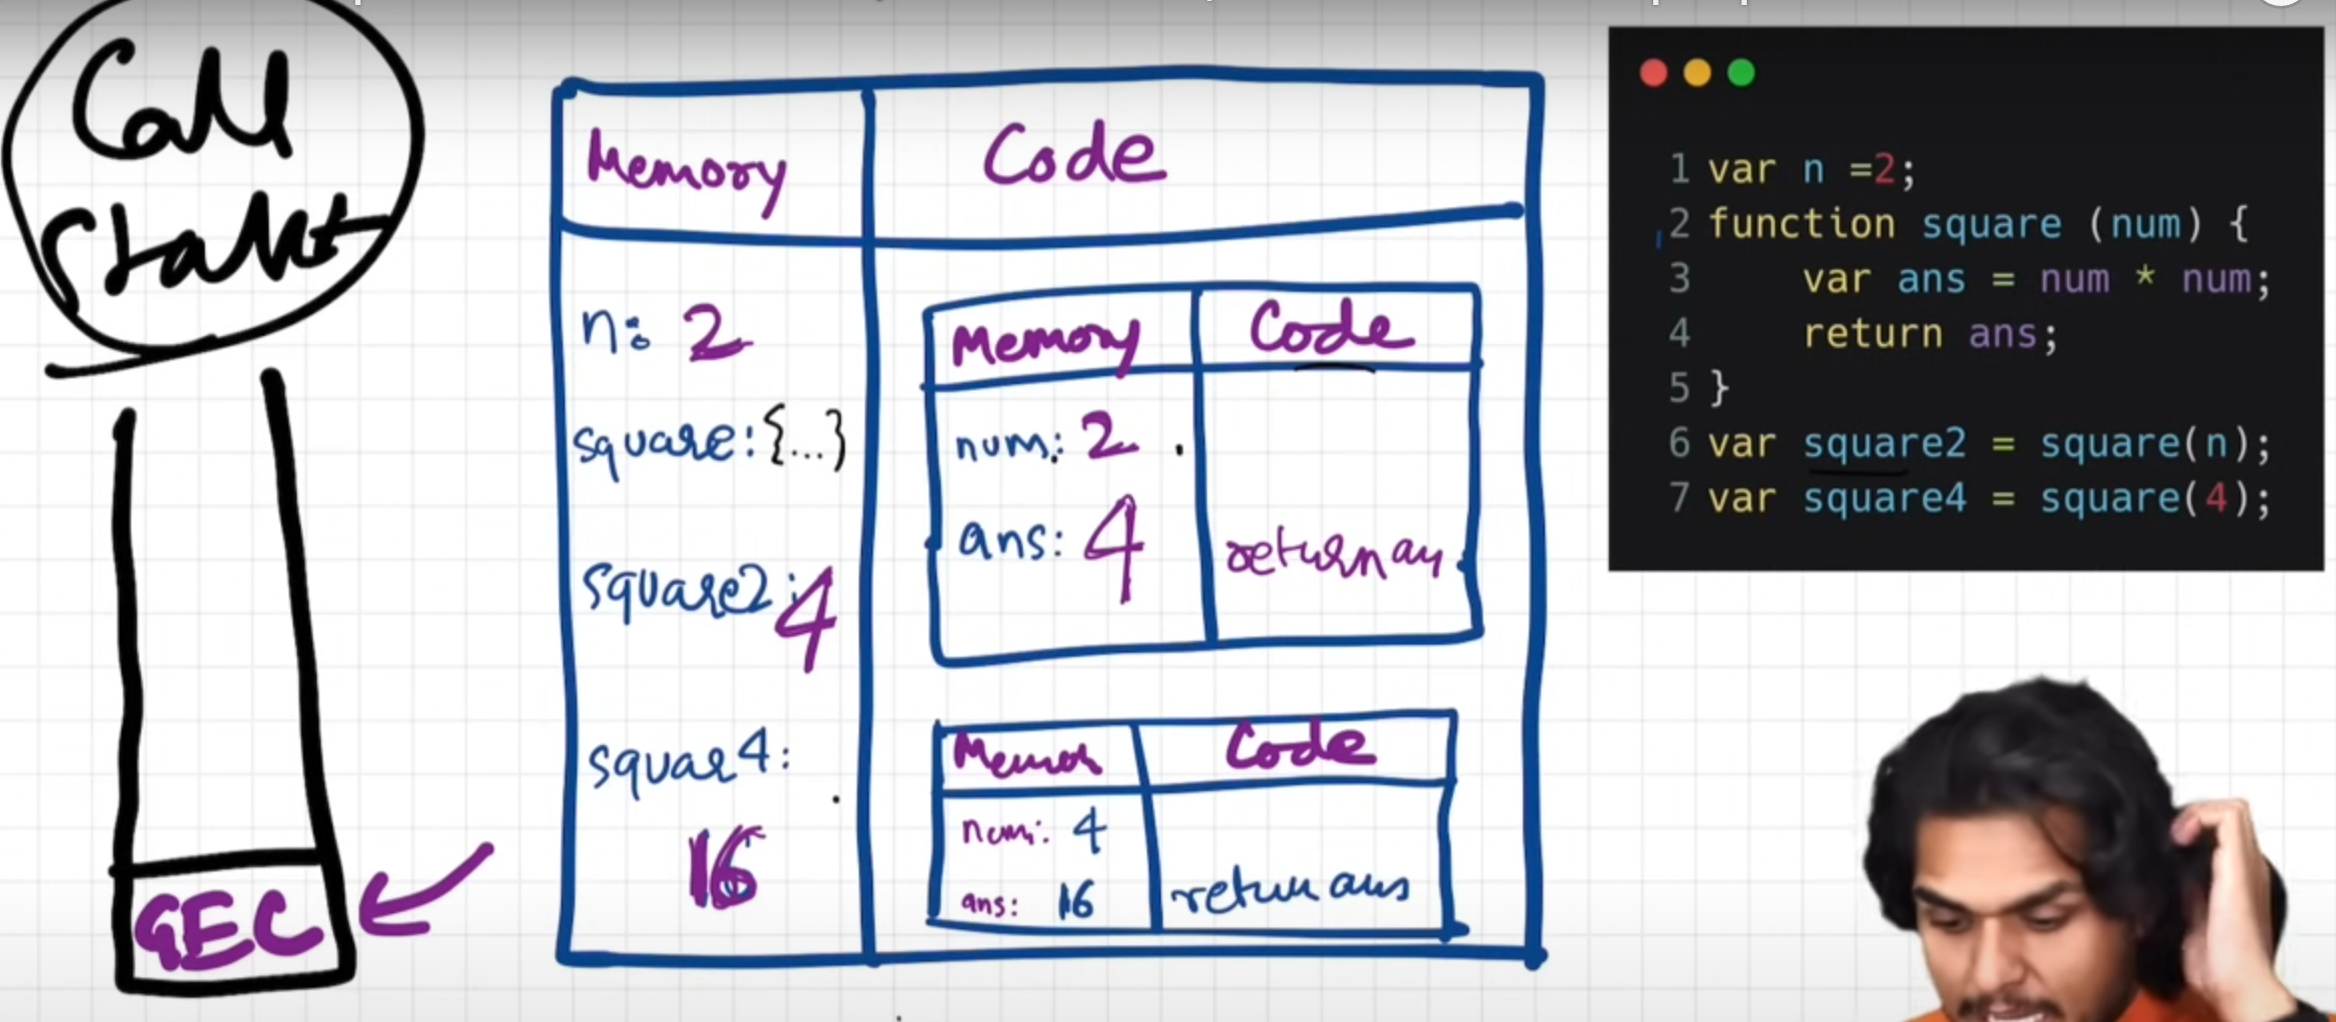 Call
Stakt
Memory
Code
n: 2
square: {...}
square2: 4
squar4:
16
Memory
Code
num: 2
ans: 4
return an
Code
num: 4
ans: 16
return ans
GEC
1 var n =2;
2 function square (num) {
3 var ans = num * num;
4 return ans;
5 }
6 var square2 = square(n);
7 var square4 = square(4);